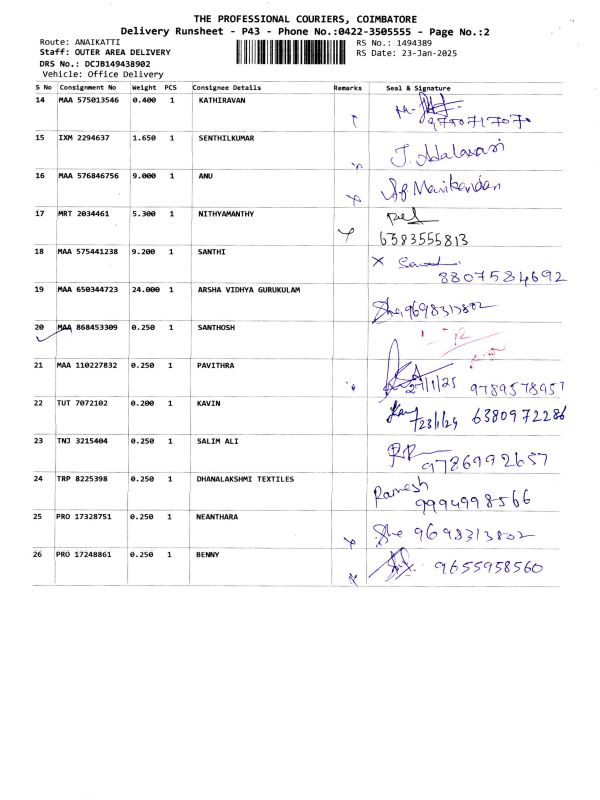 THE PROFESSIONAL COURIERS, COIMBATORE
Delivery Runsheet - P43 - Phone No.:0422-3505555 - Page No.:2
Route: ANAIKATTI RS No.: 1494389
Staff: OUTER AREA DELIVERY RS Date: 23-Jan-2025
DRS No.: DCJB149438902
Vehicle: Office Delivery
S No Consignment No Weight PCS Consignee Details Remarks Seal & Signature
14 MAA 575013546 0.400 1 KATHIRAVAN
15 IXM 2294637 1.650 1 SENTHILKUMAR
16 MAA 576846756 9.000 1 ANU Manikandan
17 MRT 2034461 5.300 1 NITHYAMANTHY
6383555813
18 MAA 575441238 9.200 1 SANTHI
8807584692
19 MAA 650344723 24.000 1 ARSHA VIDHYA GURUKULAM
9698313802
20 MAA 868453309 0.250 1 SANTHOSH
21 MAA 110227832 0.250 1 PAVITHRA
27/1/25 9789578957
22 TUT 7072102 0.200 1 KAVIN
6380972286
23 TNJ 3215404 0.250 1 SALIM ALI
9786992657
24 TRP 8225398 0.250 1 DHANALAKSHMI TEXTILES Ramesh
9994998566
25 PRO 17328751 0.250 1 NEANTHARA
She 9698313802
26 PRO 17248861 0.250 1 BENNY
9655958560